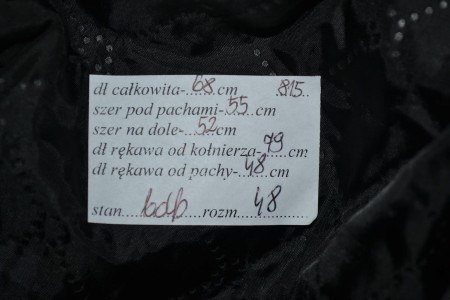 dł całkowita-..68..cm 815..
szer pod pachami-55...cm
szer na dole-...52cm
dł rękawa od kołnierza-79....cm
dł rękawa od pachy-.48.cm
stan......bdb......rozm...48..........